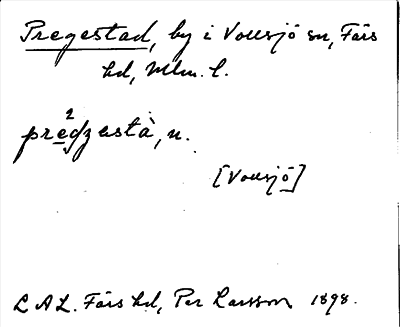 Pregestad, by i Vollsjö sn, Färs
hd, Mlm. l.
prędzestà, n.
[Vollsjö]
LAL. Färs hd, Per Larsson 1898.